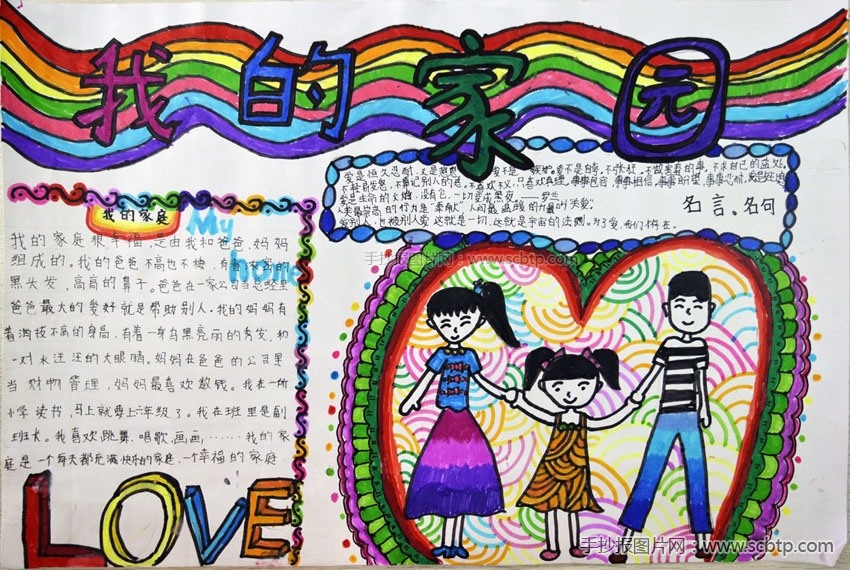 我的家园
爱是恒久忍耐,又是恩慈 爱不是 嫉妒 爱不是自夸,不张狂,不做害羞的事,不求自己的益处,
不轻易发怒,不算记别人的恶,不喜欢不义,只喜欢真理,事事包容,事事相信,事事盼望,事事忍耐,爱是
爱是生命的火焰,没有它,一切变成黑夜。——罗兰
人类最崇高的行为是“奉献”,人间最温暖的力量叫关爱;
爱别人,也被别人爱,这就是一切,这就是宇宙的法则。为了爱,我们存在。
名言。名句
我的家庭
My
home
我的家庭很幸福,是由我和爸爸、妈妈
组成的。我的爸爸不高也不矮,有着
黑头发,高高的鼻子。爸爸在一家公司当总经理
爸爸最大的爱好就是帮助别人。我的妈妈有
着 不高的身高,有着一身乌黑亮丽的秀发,和
一对水汪汪的大眼睛。妈妈在爸爸的公司里
当 财物管理,妈妈最喜欢数钱。我在一所
小学读书,马上就要上六年级了。我在班里是副
班长。我喜欢跳舞、唱歌、画画,……我的家
庭是一个每天都充满快乐的家庭,一个幸福的家庭
LOVE
手抄报图片网:www.scbtp.com
手抄报图片网:www.scbtp.com